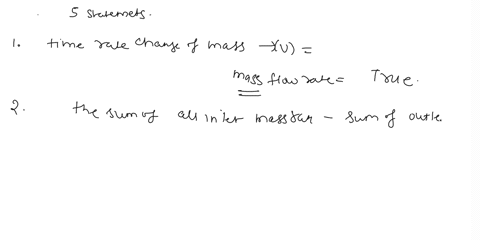 5 statemets.
1. time rate change of mass →(v) =
mass flow rate = True.
2. the sum of all inlet mass - sum of outle.